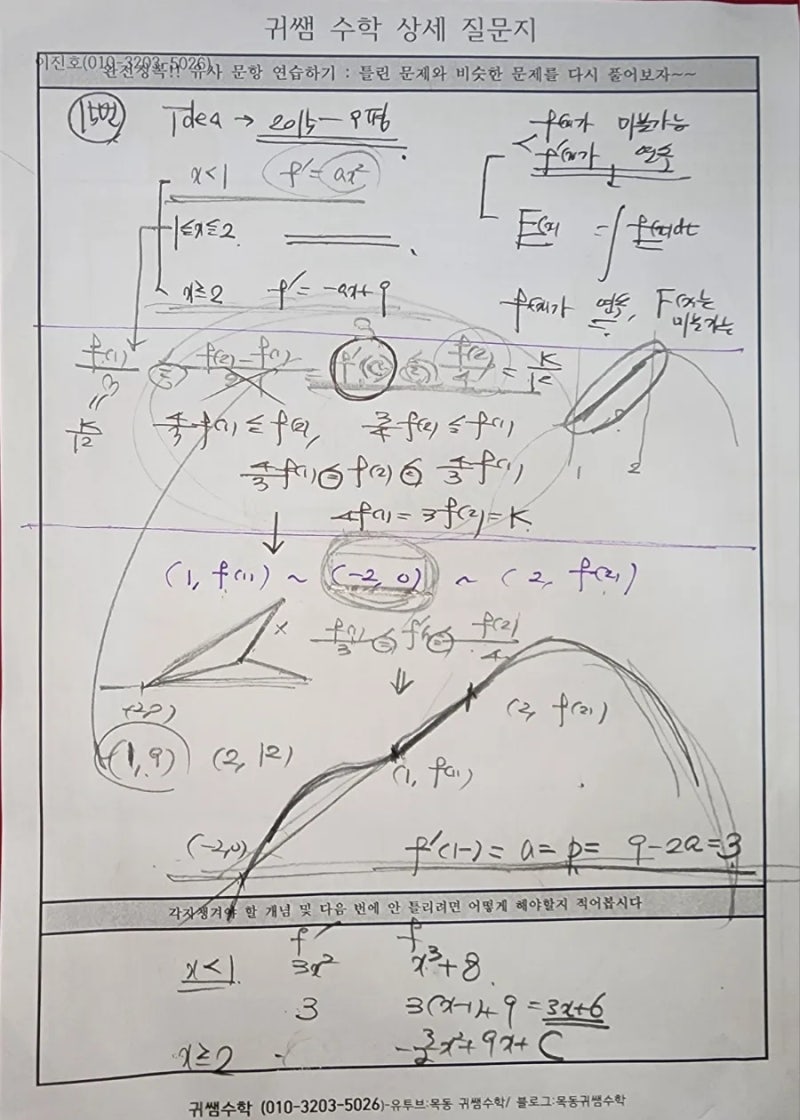 귀쌤 수학 상세 질문지
이진호(010-3203-5026)
완전정복!! 유사 문항 연습하기 : 틀린 문제와 비슷한 문제를 다시 풀어보자~~
15번 Idea → 2015-9평
f(x)가 미분가능
x<1 f′=ax²
f′(x)가 연속
1≤x≤2
F(x) = ∫f(x)dt
x≥2 f′=-ax+9
f(x)가 연속, F(x)는 미분가능
f(1)/3 ≤ f(2)-f(1) = f′(c) ≤ f(2)/4 = K/12
K/12
4/3 f(1) ≤ f(2), 3/4 f(2) ≤ f(1)
1 2
4/3 f(1) ≤ f(2) ≤ 4/3 f(1)
4f(1) = 3f(2) = K
(1, f(1)) ~ (-2, 0) ~ (2, f(2))
x
f(1)/3 ≤ f′ ≤ f(2)/4
(-2,0)
(2, f(2))
(1,9) (2, 12)
(1, f(1))
(-2,0)
f′(1-) = a = p = 9-2a = 3
각자챙겨야 할 개념 및 다음 번에 안 틀리려면 어떻게 해야할지 적어봅시다
f′ f
x<1 3x² x³+8
3 3(x-1)+9 = 3x+6
x≥2 -3/2x²+9x+C
귀쌤수학 (010-3203-5026)-유투브:목동 귀쌤수학/ 블로그:목동귀쌤수학